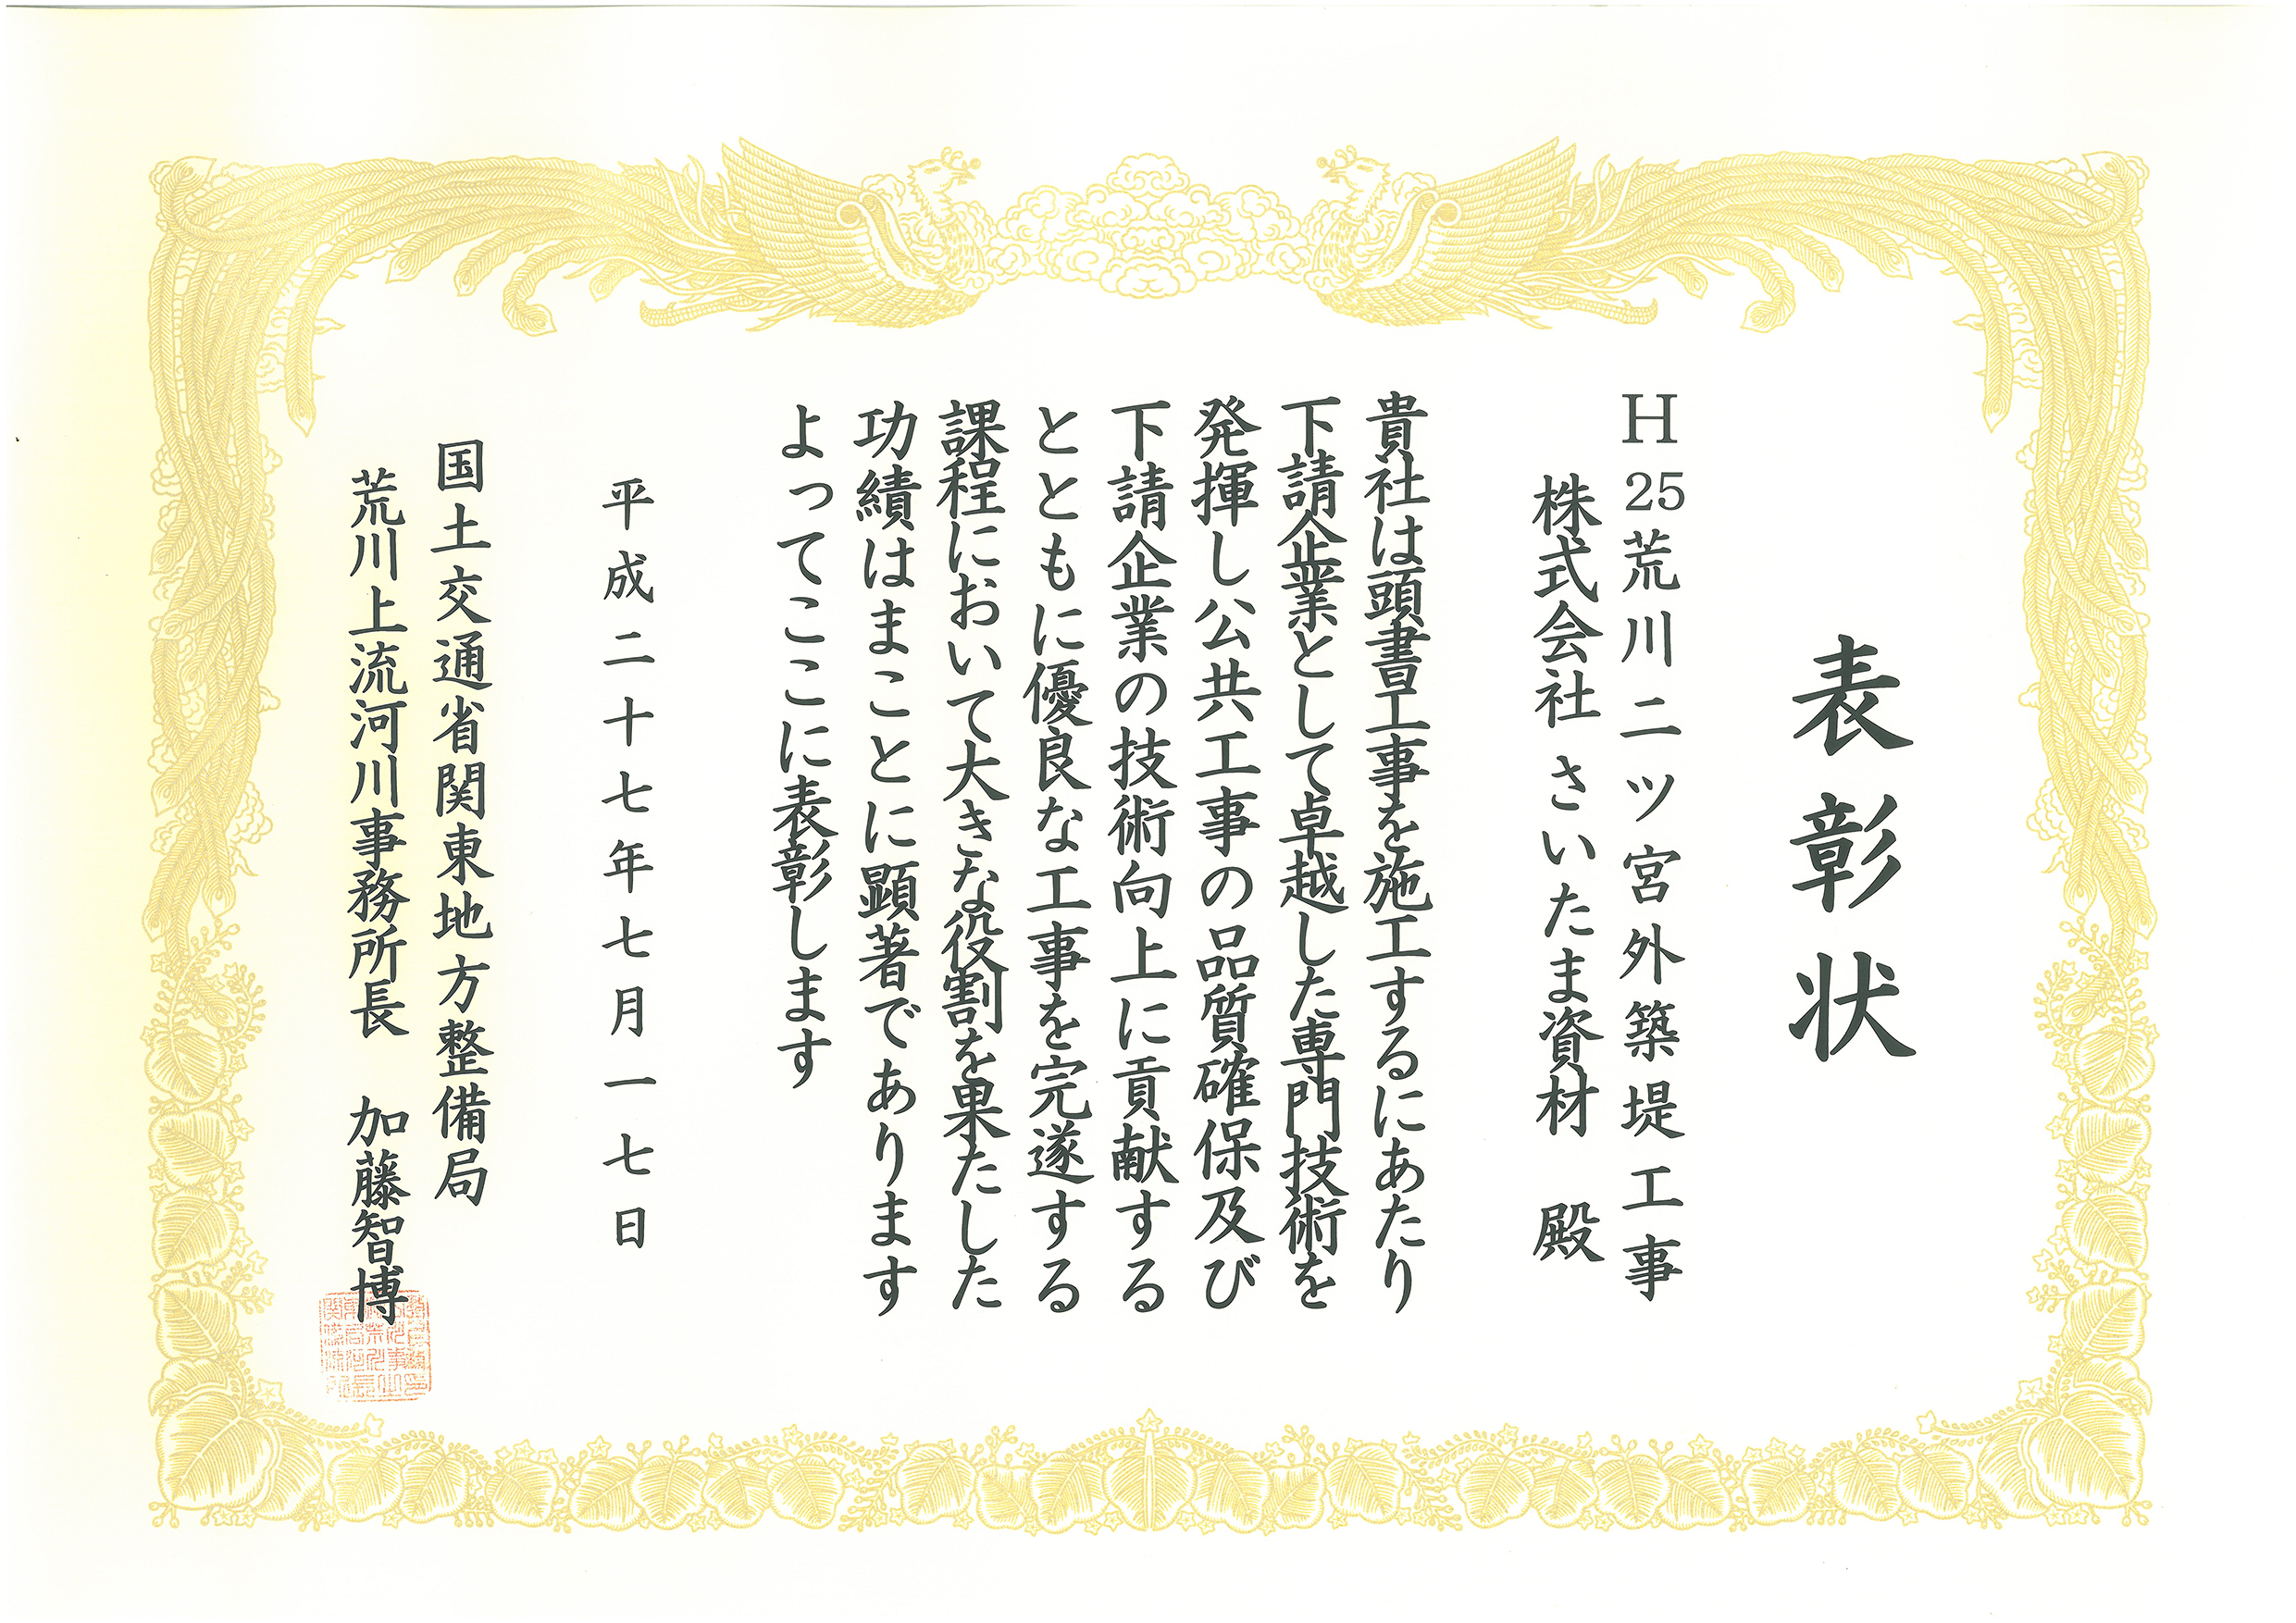 表彰状
H25荒川二ツ宮外築堤工事
株式会社 さいたま資材 殿
貴社は頭書工事を施工するにあたり
下請企業として卓越した専門技術を
発揮し公共工事の品質確保及び
下請企業の技術向上に貢献する
とともに優良な工事を完遂する
課程において大きな役割を果たした
功績はまことに顕著であります
よってここに表彰します
平成二十七年七月一七日
国土交通省関東地方整備局
荒川上流河川事務所長 加藤智博